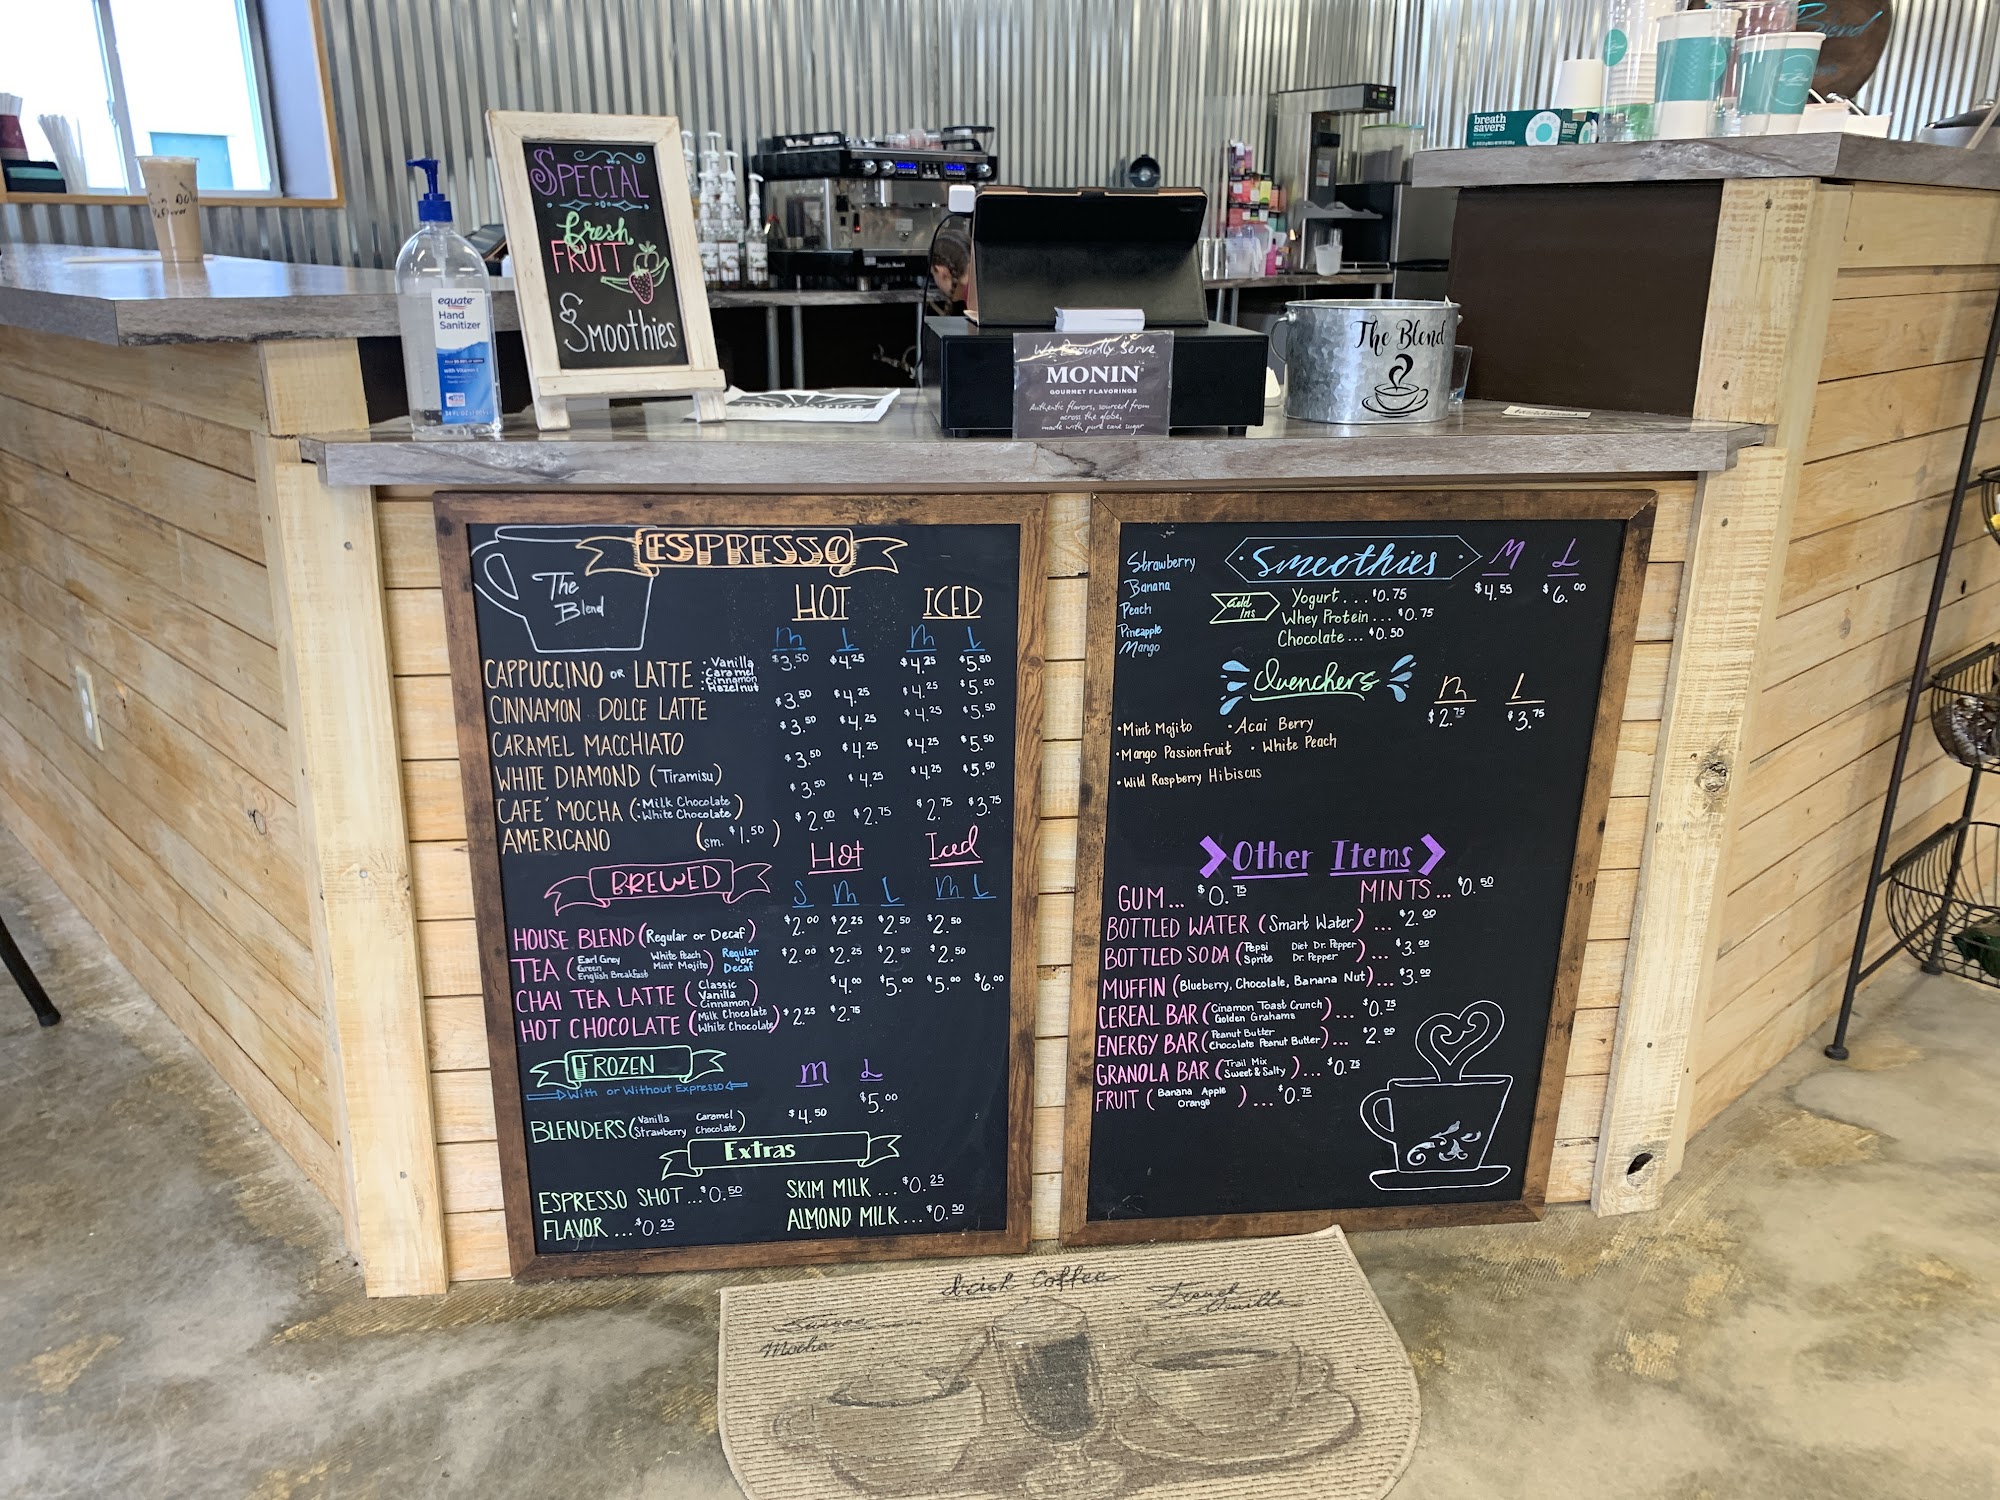 Blend
breath savers
The Blend
equate
Hand Sanitizer
with Vitamin E
SPECIAL
fresh
FRUIT
Smoothies
We Proudly Serve
MONIN
GOURMET FLAVORINGS
Authentic flavors, sourced from
across the globe,
made with pure cane sugar
The Blend
The Blend
ESPRESSO
HOT ICED
M L M L
CAPPUCCINO OR LATTE • Vanilla • Caramel • Cinnamon • Hazelnut $3.50 $4.25 $4.25 $5.50
CINNAMON DOLCE LATTE $3.50 $4.25 $4.25 $5.50
CARAMEL MACCHIATO $3.50 $4.25 $4.25 $5.50
WHITE DIAMOND (Tiramisu) $3.50 $4.25 $4.25 $5.50
CAFE' MOCHA (• Milk Chocolate • White Chocolate) $3.50 $4.25 $4.25 $5.50
AMERICANO (sm. $1.50) $2.00 $2.75 $2.75 $3.75
BREWED
Hot Iced
S M L M L
HOUSE BLEND (Regular or Decaf) $2.00 $2.25 $2.50 $2.50
TEA (Earl Grey White Peach Green Mint Mojito English Breakfast) Regular or Decaf $2.00 $2.25 $2.50 $2.50
CHAI TEA LATTE (Classic Vanilla Cinnamon) $4.00 $5.00 $5.00 $6.00
HOT CHOCOLATE (Milk Chocolate White Chocolate) $2.25 $2.75
FROZEN
With or Without Expresso
M L
BLENDERS (Vanilla Caramel Strawberry Chocolate) $4.50 $5.00
Extras
ESPRESSO SHOT ... $0.50 SKIM MILK ... $0.25
FLAVOR ... $0.25 ALMOND MILK ... $0.50
Strawberry
Banana
Peach
Pineapple
Mango
Smoothies M L
$4.55 $6.00
Add Ins
Yogurt ... $0.75
Whey Protein ... $0.75
Chocolate ... $0.50
Quenchers M L
$2.75 $3.75
• Mint Mojito • Acai Berry
• Mango Passionfruit • White Peach
• Wild Raspberry Hibiscus
Other Items
GUM ... $0.75 MINTS ... $0.50
BOTTLED WATER (Smart Water) ... $2.00
BOTTLED SODA (Pepsi Diet Dr. Pepper Sprite Dr. Pepper) ... $3.00
MUFFIN (Blueberry, Chocolale, Banana Nut) ... $3.00
CEREAL BAR (Cinamon Toast Crunch Golden Grahams) ... $0.75
ENERGY BAR (Peanut Butter Chocolate Peanut Butter) ... $2.00
GRANOLA BAR (Trail Mix Sweet & Salty) ... $0.75
FRUIT (Banana Apple Orange) ... $0.75
Irish Coffee
French Vanilla
Mocha